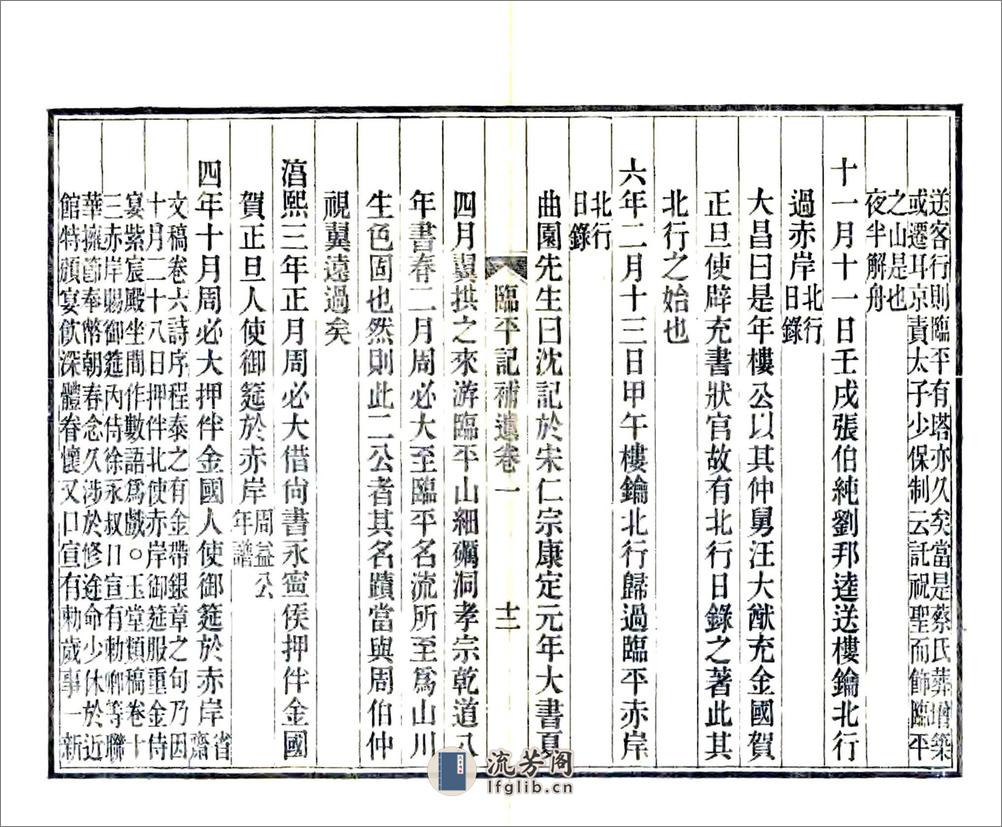 送客行則臨平有塔亦久矣當是蔡氏葬增築
或遷耳京責太子少保制云託祝聖而飾臨平
之山是也
夜半解舟
十一月十一日壬戌張伯純劉邦達送樓鑰北行
過赤岸北行
日錄
大昌曰是年樓公以其仲舅汪大猷充金國賀
正旦使辟充書狀官故有北行日錄之著此其
北行之始也
六年二月十三日甲午樓鑰北行歸過臨平赤岸
北行
日錄
曲園先生曰沈記於宋仁宗康定元年大書夏
臨平記補遺卷一
十二
四月翼拱之來游臨平山細礪洞孝宗乾道八
年書春二月周必大至臨平名流所至爲山川
生色固也然則此二公者其名蹟當與周伯仲
視翼遠過矣
湻熙三年正月周必大借尙書永寧侯押伴金國
賀正旦人使御筵於赤岸周益公
年譜
四年十月周必大押伴金國人使御筵於赤岸省齋
文稿卷六詩序程泰之有金帶銀章之句乃因
十月二十八日押伴北使赤岸御筵服重金侍
宴紫宸殿坐間作數語爲戲○玉堂類稿卷十
三赤岸賜御筵內侍徐永叔口宣有勅卿等聯
華擁節奉幣朝春念久涉於修途命少休於近
館特頒宴飲深體眷懷又口宣有勅歲事一新
流芳阁
lfglib.cn